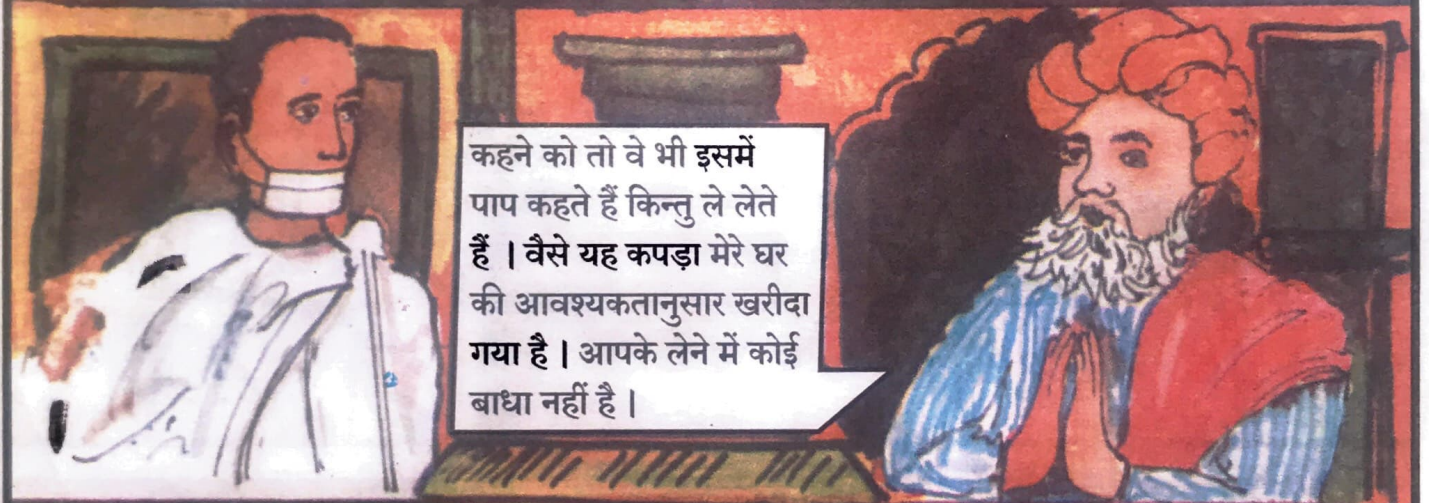 कहने को तो वे भी इसमें
पाप कहते हैं किन्तु ले लेते
हैं । वैसे यह कपड़ा मेरे घर
की आवश्यकतानुसार खरीदा
गया है । आपके लेने में कोई
बाधा नहीं है ।